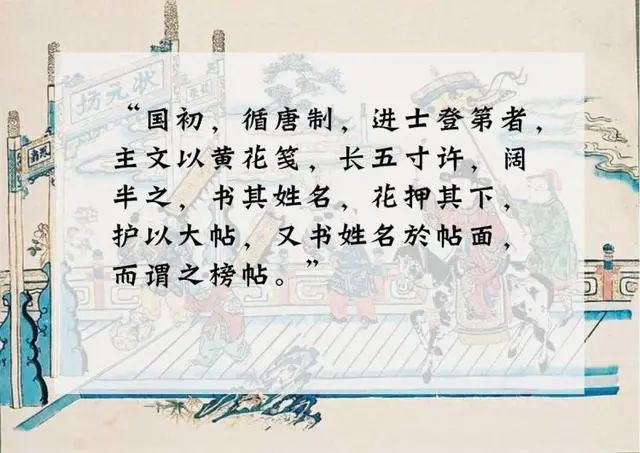 状元坊
“国初，循唐制，进士登第者，
主文以黄花笺，长五寸许，阔
半之，书其姓名，花押其下，
护以大帖，又书姓名於帖面，
而谓之榜帖。”